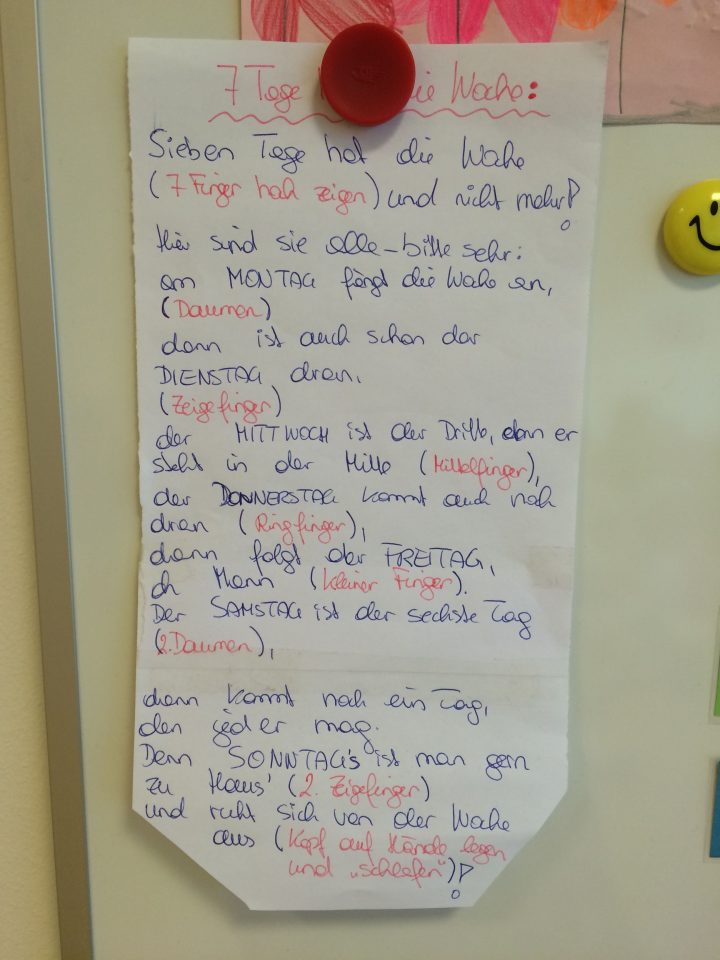 7 Tage die Woche:
Sieben Tage hat die Woche
(7 Finger hoch zeigen) und nicht mehr!
Hier sind sie alle - bitte sehr:
am MONTAG fängt die Woche an,
(Daumen)
dann ist auch schon der
DIENSTAG dran,
(Zeigefinger)
der MITTWOCH ist der Dritte, denn er
steht in der Mitte (Mittelfinger),
der DONNERSTAG kommt auch noch
dran (Ringfinger),
dann folgt der FREITAG,
oh Mann (kleiner Finger).
Der SAMSTAG ist der sechste Tag
(2. Daumen),
dann kommt noch ein Tag,
den jeder mag.
Denn SONNTAG'S ist man gern
zu Haus' (2. Zeigefinger)
und ruht sich von der Woche
aus (Kopf auf Hände legen
und „schlafen")!